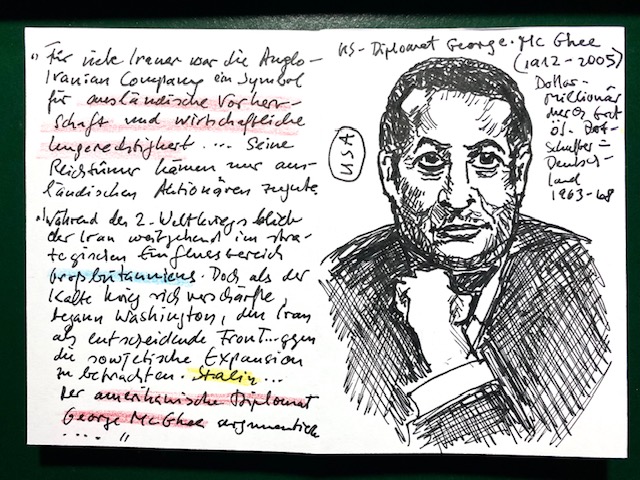 Für viele Iraner war die Anglo-
Iranian Company ein Symbol
für ausländische Vorherr-
schaft und wirtschaftliche
Ungerechtigkeit .... Seine
Reichtümer kämen nur aus-
ländischen Aktionären zugute.
Während des 2. Weltkriegs blieb
der Iran weitgehend im stra-
tegischen Einflussbereich
Großbritanniens. Doch als der
Kalte Krieg sich verschärfte,
begann Washington, den Iran
als entscheidende Front...gegen
die sowjetische Expansion
zu betrachten. Stalin...
Der amerikanische Diplomat
George McGhee argumentierte
.... "
US-Diplomat George. Mc Ghee
(1912-2005)
Dollar-
millionär
durch
Öl. Bot-
schafter =
Deutsch-
land
1963-68
USA